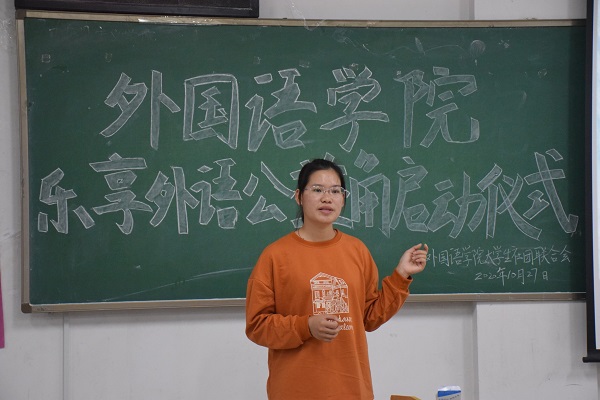 外国语学院
乐享外语公益角启动仪式
外国语学院大学生社团联合会
2020年10月27日